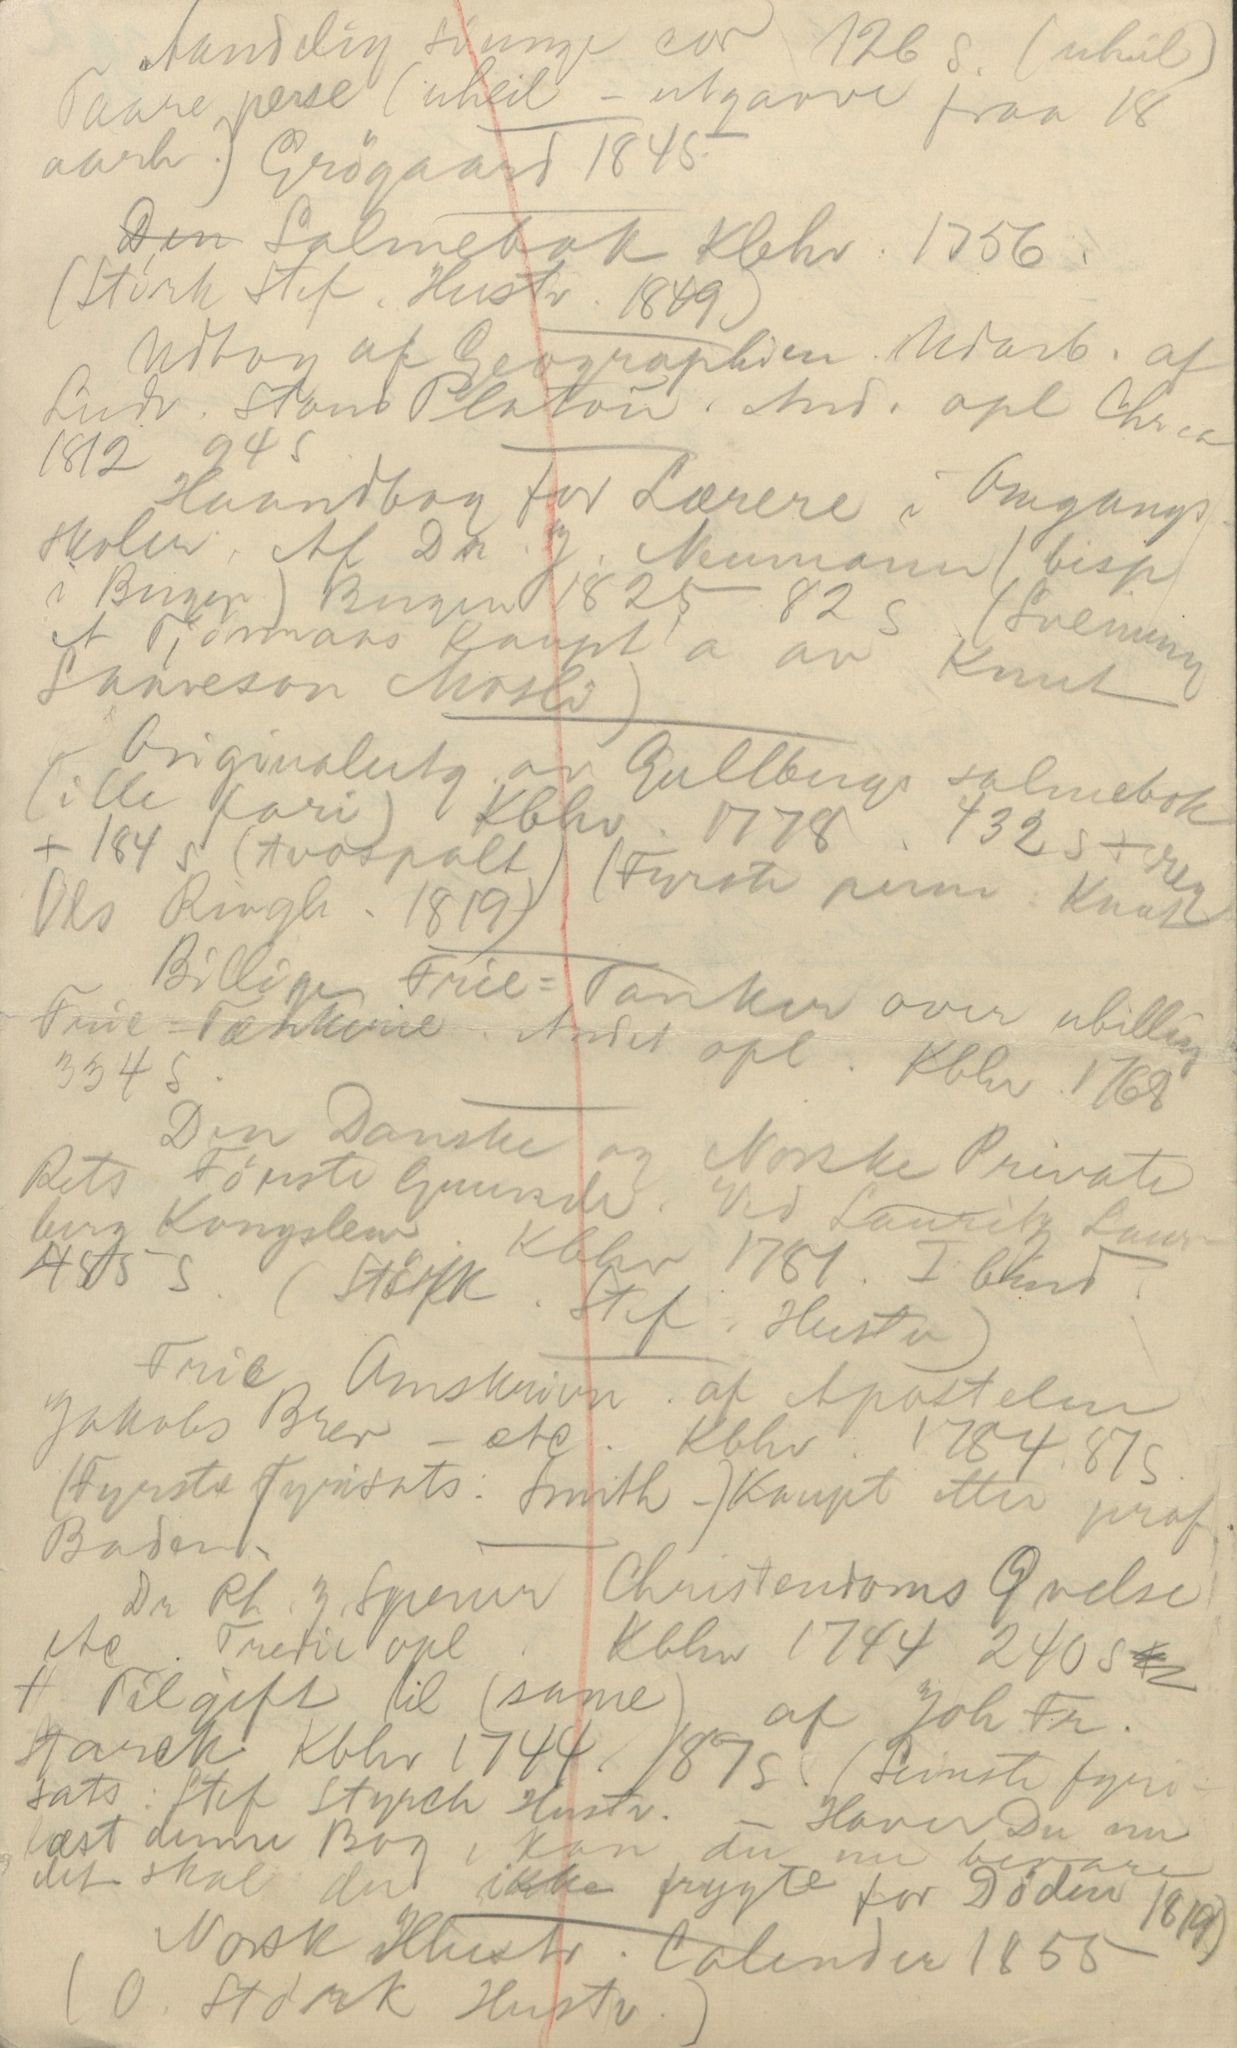 Aandelig siunge cor 126 s. (uheil)
Taare perse (uheil - utgaave fraa 18
aarh.) Grögaard 1845
Den Salmebok Kbhv. 1756.
(Störk Stef. Hustv. 1849)
Udtog af Geographien. Udarb. af
Ludv. Stoud Platou. And. opl Chr.ia
1812 94 s
Haandbog for Lærere i Omgangs-
skolen. Af Dr. J. Neumann (bisp
i Bergen) Bergen 1825 82 s. (Sveinung
Tjönnaas kaupt a av Knut
Saaveson Mosli)
Originalutg. av Gullbergs salmebok
(ille fari) Kbhv. 1778. 432 s + reg
+ 184 s (tvospalt) (Fyrste perm. Knut
Ols Ringh. 1819)
Billige Frie=Tanker over ubillig
Frie=Tænkerie. Andet opl. Kbhv. 1768
334 s.
Den Danske og Norske Private
Rets Förste Grunde. Ved Lauritz Laur-
berg Kongslew. Kbhv 1781. I bind.
485 s. (Störk. Stef. Hustv)
Frie Omskrivn. af Apostelen
Jakobs Brev - etc. Kbhv. 1784. 87 s.
(Fyrste fyrisats: Smith -) Kaupt etter prof.
Baden.
Dr Ph. J. Spener Christendoms Övelse
etc. Tredie opl. Kbhv 1744 240 s
+ Tilgift til (same) af Joh Fr.
Starck Kbhv 1744. 187 s. (Seinste fyri-
sats: Stef Styrch Hustv. - Haver Du nu
læst denne Bog, kan du nu bevare
det skal du ikke frygte for Döden 1819)
Norsk Illustr. Calender 1855
(O. Störk Hustv.)